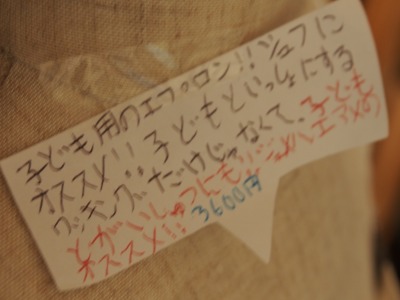 子ども用のエプロン!!シュフに
オススメ!!子どもといっしょにする
クッキングだけじゃなくて、子ども
とがいしゅつにも
オススメ!!! 3600円